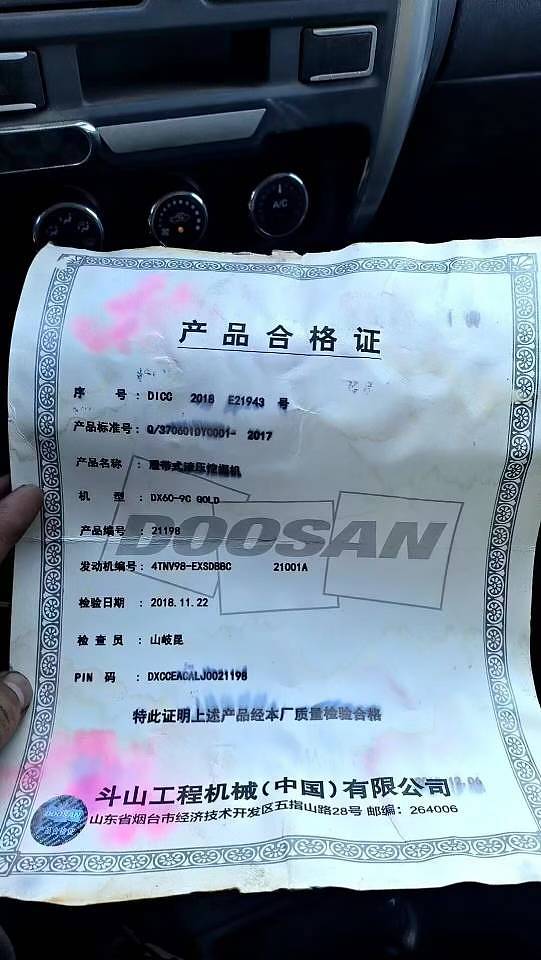 A/C
产品合格证
序 号：DICC 2018 E21943 号
产品标准号：Q/370601DYC001- 2017
产品名称：履带式液压挖掘机
机 型：DX60-9C GOLD
DOOSAN
产品编号：21198
发动机编号：4TNV98-EXSDBBC 21001A
检验日期：2018.11.22
检查员：山岐昆
PIN 码：DXCCEACALJ0021198
特此证明上述产品经本厂质量检验合格
斗山工程机械(中国)有限公司
山东省烟台市经济技术开发区五指山路28号 邮编：264006
DOOSAN